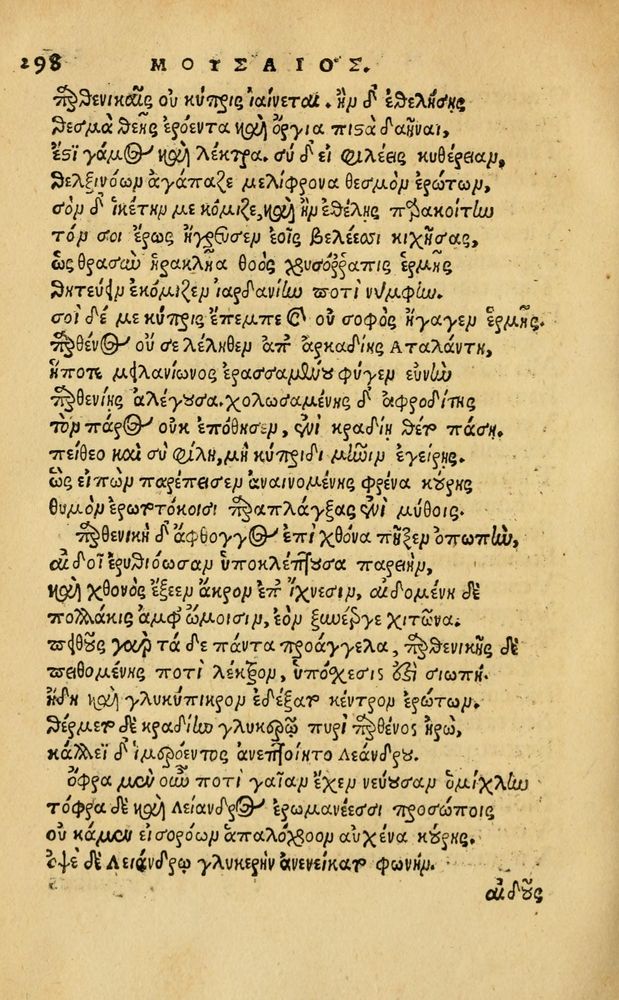 298 ΜΟΥΣΑΙΟΣ.
παρθενικαῖς οὐ κύπρις ἰαίνεται. ἢν δ' ἐθελήσῃς
θεσμὰ θεῆς ἐρόεντα καὶ ὄργια πιστὰ δαῆναι,
ἔστι γάμος καὶ λέκτρα. σύ δ' εἰ φιλέεις κυθέρειαν,
θελξινόων ἀγάπαζε μελίφρονα θεσμὸν ἐρώτων,
σὸν δ' ἱκέτην με κόμιζε, καὶ ἢν ἐθέλῃς παρακοίτην
τόν σοι ἔρως ἤγρευσεν ἑοῖς βελέεσσι κιχήσας,
ὡς θρασὺν ἡρακλῆα θοὸς χρυσόρραπις ἑρμῆς
θητεύειν ἐκόμιζεν ἰαρδανίην ποτὶ νύμφην.
σοὶ δέ με κύπρις ἔπεμπε καὶ οὐ σοφὸς ἤγαγεν ἑρμῆς.
παρθένος οὔ σε λέληθεν ἀπ' ἀρκαδίης Αταλάντη,
ἥ ποτε μειλανίωνος ἐρασσαμένου φύγεν εὐνὴν
παρθενίης ἀλέγουσα. χολωσαμένης δ' ἀφροδίτης
τὸν πάρος οὐκ ἐπόθησεν, ἐνὶ κραδίῃ θέτο πάσῃ.
πείθεο καὶ σὺ φίλη, μὴ κύπριδι μῆνιν ἐγείρῃς.
ὣς εἰπὼν παρέπεισεν ἀναινομένης φρένα κούρης
θυμὸν ἐρωτοτόκοισι παραπλάγξας ἐνὶ μύθοις.
παρθενικὴ δ' ἄφθογγος ἐπὶ χθόνα πῆξεν ὀπωπὴν,
αἰδοῖ ἐρυθιόωσαν ὑποκλέπτουσα παρειὴν,
καὶ χθονὸς ἔξεεν ἄκρον ἐπ' ἴχνεσιν, αἰδομένη δὲ
πολλάκις ἀμφ' ὤμοισιν, ἑὸν ξυνέεργε χιτῶνα.
πειθοῦς γὰρ τά δε πάντα προάγγελα, παρθενικῆς δὲ
πειθομένης ποτὶ λέκτρον, ὑπόσχεσις ἐστὶ σιωπή.
ἤδη καὶ γλυκύπικρον ἐδέξατο κέντρον ἐρώτων.
θέρμετο δὲ κραδίην γλυκερῷ πυρὶ παρθένος ἡρώ,
κάλλεϊ δ' ἱμερόεντος ἀνεπτοίητο Λεάνδρου.
ὄφρα μὲν οὖν ποτὶ γαῖαν ἔχεν νεύουσαν ὀμίχλην
τόφρα δὲ καὶ Λείανδρος ἐρωμανέεσσι προσώποις
οὐ κάμεν εἰσορόων ἁπαλόχροον αὐχένα κούρης.
ὀψὲ δὲ Λειάνδρῳ γλυκερὴν ἀνενείκατο φωνήν.
αἰδοῦς